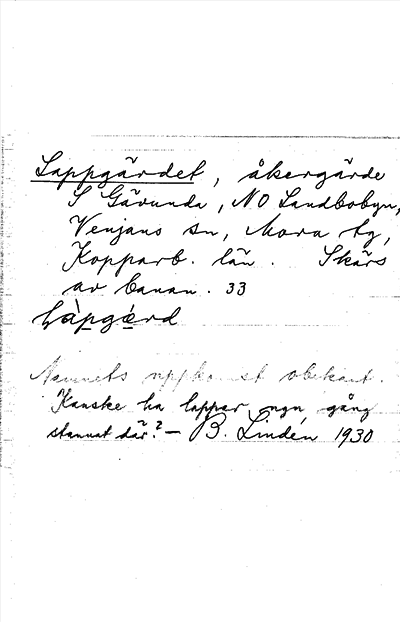 Lappgärdet, åkergärde
S Gävunda, NO Landbobyn,
Venjans sn, Mora tg,
Kopparb. län. Skärs
av banan. 33
Làpgà̱rd
Namnets uppkomst obekant.
Kanske ha lappar ngn gång
stannat där? — B. Lindén 1930